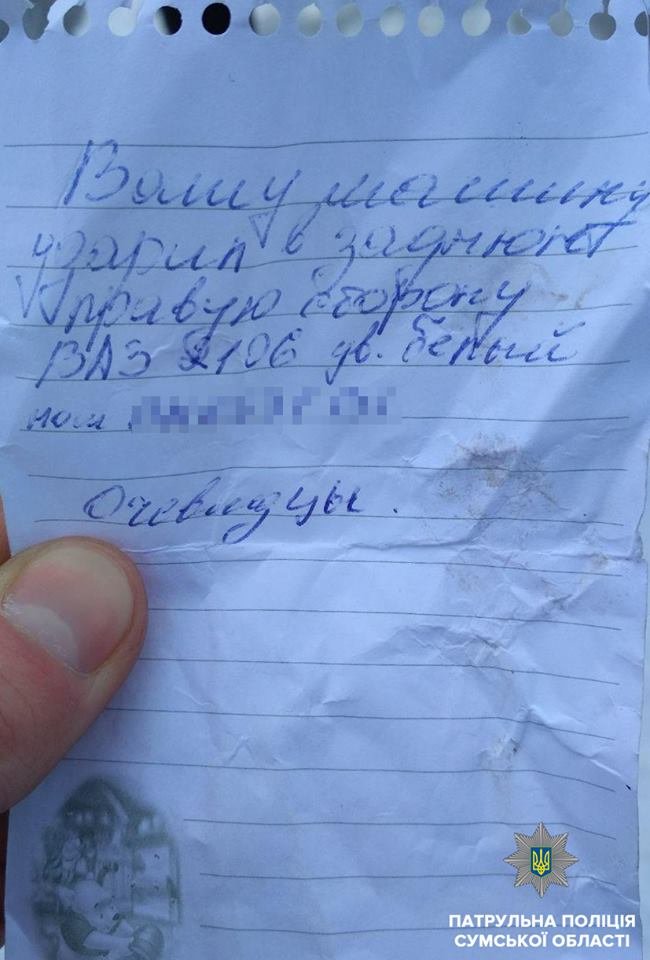 Вашу машину
ударил в заднюю
правую сторону
ВАЗ 2106 цв. белый
ном
Очевидцы.
ПАТРУЛЬНА ПОЛІЦІЯ
СУМСЬКОЇ ОБЛАСТІ